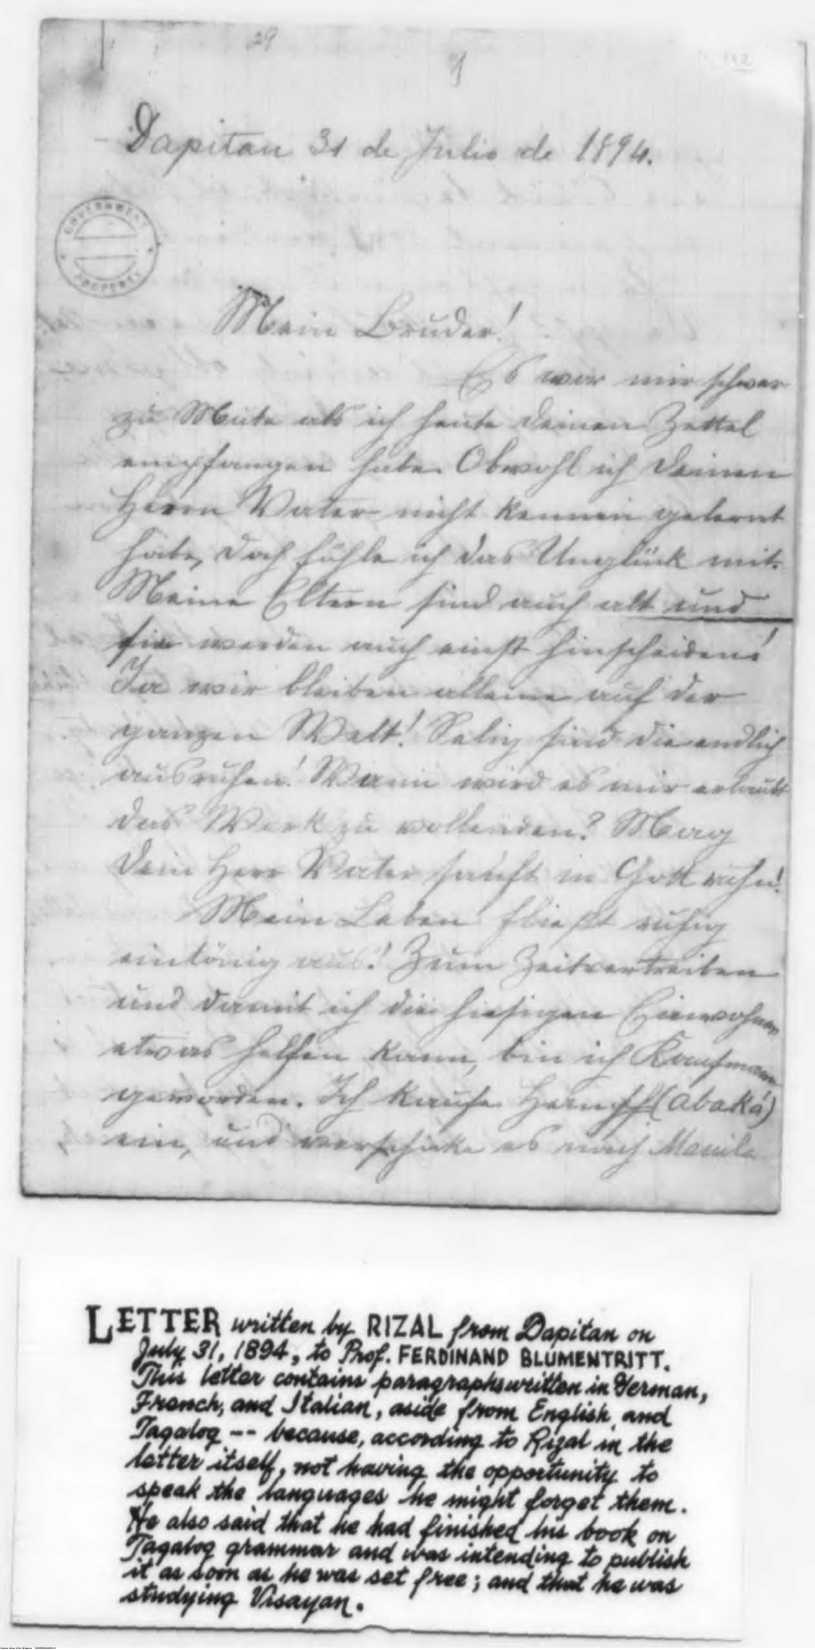 29
Dapitan 31 de Julio de 1894.
GOVERNMENT
PROPERTY
Mein Bruder!
Es war mir schwer
zu Mute als ich heute deinen Zettel
empfangen habe. Obwohl ich deinen
Herrn Vater nicht kennen gelernt
habe, doch fühle ich das Unglück mit.
Meine Eltern sind auch alt und
sie werden auch einst hinscheiden!
Ja wir bleiben alleine auf der
ganzen Welt! Selig sind die endlich
ausruhen! Wann wird es mir erlaubt
das Werk zu vollenden? Mag
dein Herr Vater sanft in Gott ruhn!
Mein Leben fließt ruhig
eintönig aus! Zum Zeitvertreiben
und damit ich die hiesigen Einwohner
etwas helfen kann, bin ich Kaufmann
geworden. Ich kaufe (abaká)
ein, und verschicke es nach Manila
LETTER written by RIZAL from Dapitan on
July 31, 1894, to Prof. FERDINAND BLUMENTRITT.
This letter contains paragraphs written in German,
French, and Italian, aside from English and
Tagalog -- because, according to Rizal in the
letter itself, not having the opportunity to
speak the languages he might forget them.
He also said that he had finished his book on
Tagalog grammar and was intending to publish
it as soon as he was set free; and that he was
studying Visayan.